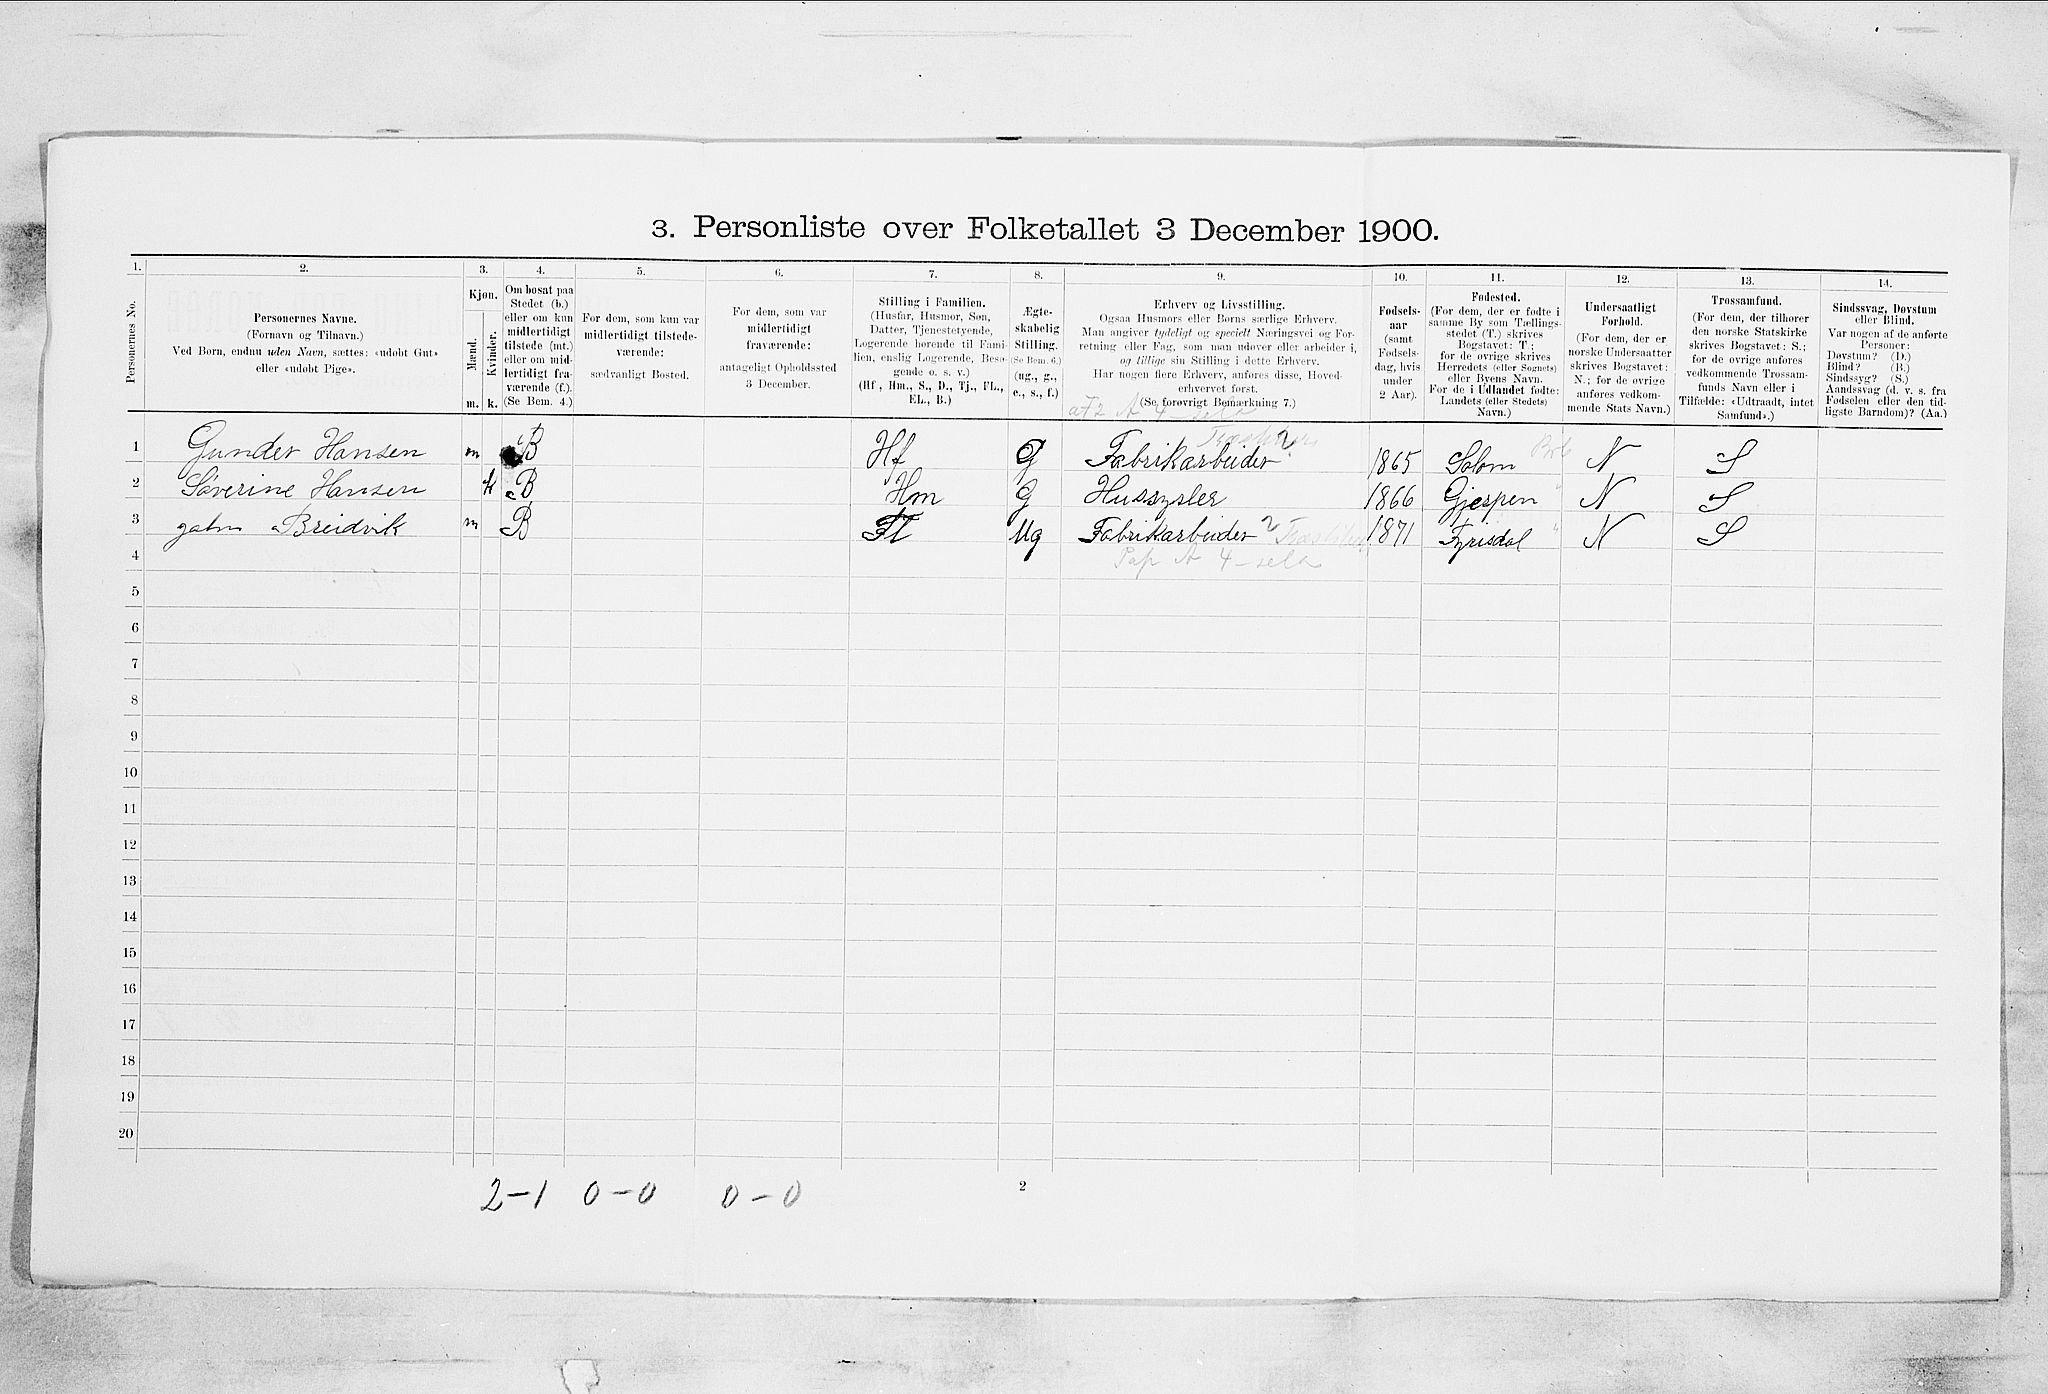 3. Personliste over Folketallet 3 December 1900.
1. 2. 3. 4. 5. 6. 7. 8. 9. 10. 11. 12. 13. 14.
Personernes No.
Personernes Navne.
(Fornavn og Tilnavn.)
Ved Børn, endnu uden Navn, sættes: «udøbt Gut»
eller «udøbt Pige».
Kjøn.
Mænd.
Kvinder.
m. k.
Om bosat paa
Stedet (b.)
eller om kun
midlertidigt
tilstede (mt.)
eller om mid-
lertidigt fra-
værende (f.).
(Se Bem. 4.)
For dem, som kun var
midlertidigt tilstede-
værende:
sædvanligt Bosted.
For dem, som var
midlertidigt
fraværende:
antageligt Opholdssted
3 December.
Stilling i Familien.
(Husfar, Husmor, Søn,
Datter, Tjenestetyende,
Logerende hørende til Fami-
lien, enslig Logerende, Besø-
gende o. s. v.)
(Hf., Hm., S., D., Tj., FL.,
EL., B.)
Ægte-
skabelig
Stilling.
(Se Bem. 6.)
(ug., g.,
e., s., f.)
Erhverv og Livsstilling.
Ogsaa Husmors eller Børns særlige Erhverv.
Man angiver tydeligt og specielt Næringsvei og For-
retning eller Fag, som man udøver eller arbeider i,
og tillige sin Stilling i dette Erhverv.
Har nogen flere Erhverv, anføres disse, Hoved-
erhvervet først.
(Se forøvrigt Bemærkning 7.)
Fødsels-
aar
(samt
Fødsels-
dag, hvis
under
2 Aar).
Fødested.
(For dem, der er fødte i
samme By som Tællings-
stedet (T.) skrives
Bogstavet: T.;
for de øvrige skrives
Herredets (eller Sognets)
eller Byens Navn.
For de i Udlandet fødte:
Landets (eller Stedets)
Navn.)
Undersaatligt
Forhold.
(For dem, der er
norske Undersaatter
skrives Bogstavet:
N.; for de øvrige
anføres vedkom-
mende Stats Navn.)
Trossamfund.
(For dem, der tilhører
den norske Statskirke
skrives Bogstavet: S.;
for de øvrige anføres
vedkommende Trossam-
funds Navn eller i
Tilfælde: «Udtraadt, intet
Samfund».)
Sindssvag, Døvstum
eller Blind.
Var nogen af de anførte
Personer:
Døvstum? (D.)
Blind? (B.)
Sindssyg? (S.)
Aandssvag (d. v. s. fra
Fødselen eller den tid-
ligste Barndom)? (Aa.)
1 Gunder Hansen m B Hf G Fabrikarbeider 1865 N S
2 Säverine Hansen k B Hm G Hussysler 1866 Gjerpen N S
3 Breidvik m B Fl Ug Fabrikarbeider 1871 Fyrisdal N S
4
5
6
7
8
9
10
11
12
13
14
15
16
17
18
19
20
2-1 0-0 0-0
2